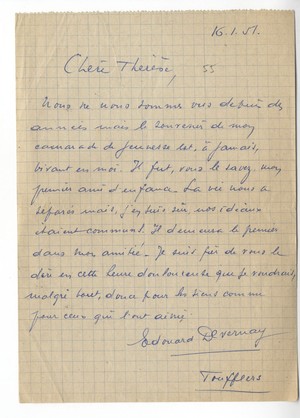 16.1.51.
Chère Thérèse,
55
Nous ne nous sommes vus depuis des
années mais le souvenir de mon
camarade de jeunesse est, à jamais,
vivant en moi. Il fut, vous le savez, mon
premier ami d'enfance. La vie nous a
séparés mais, j'en suis sûr, nos idéaux
étaient communs. Il demeure le premier
dans mon amitié. Je suis fier de vous le
dire en cette heure douloureuse que je voudrais,
malgré tout, douce pour les siens comme
pour ceux qui l'ont aimé.
Edouard Devernay
Toufflers